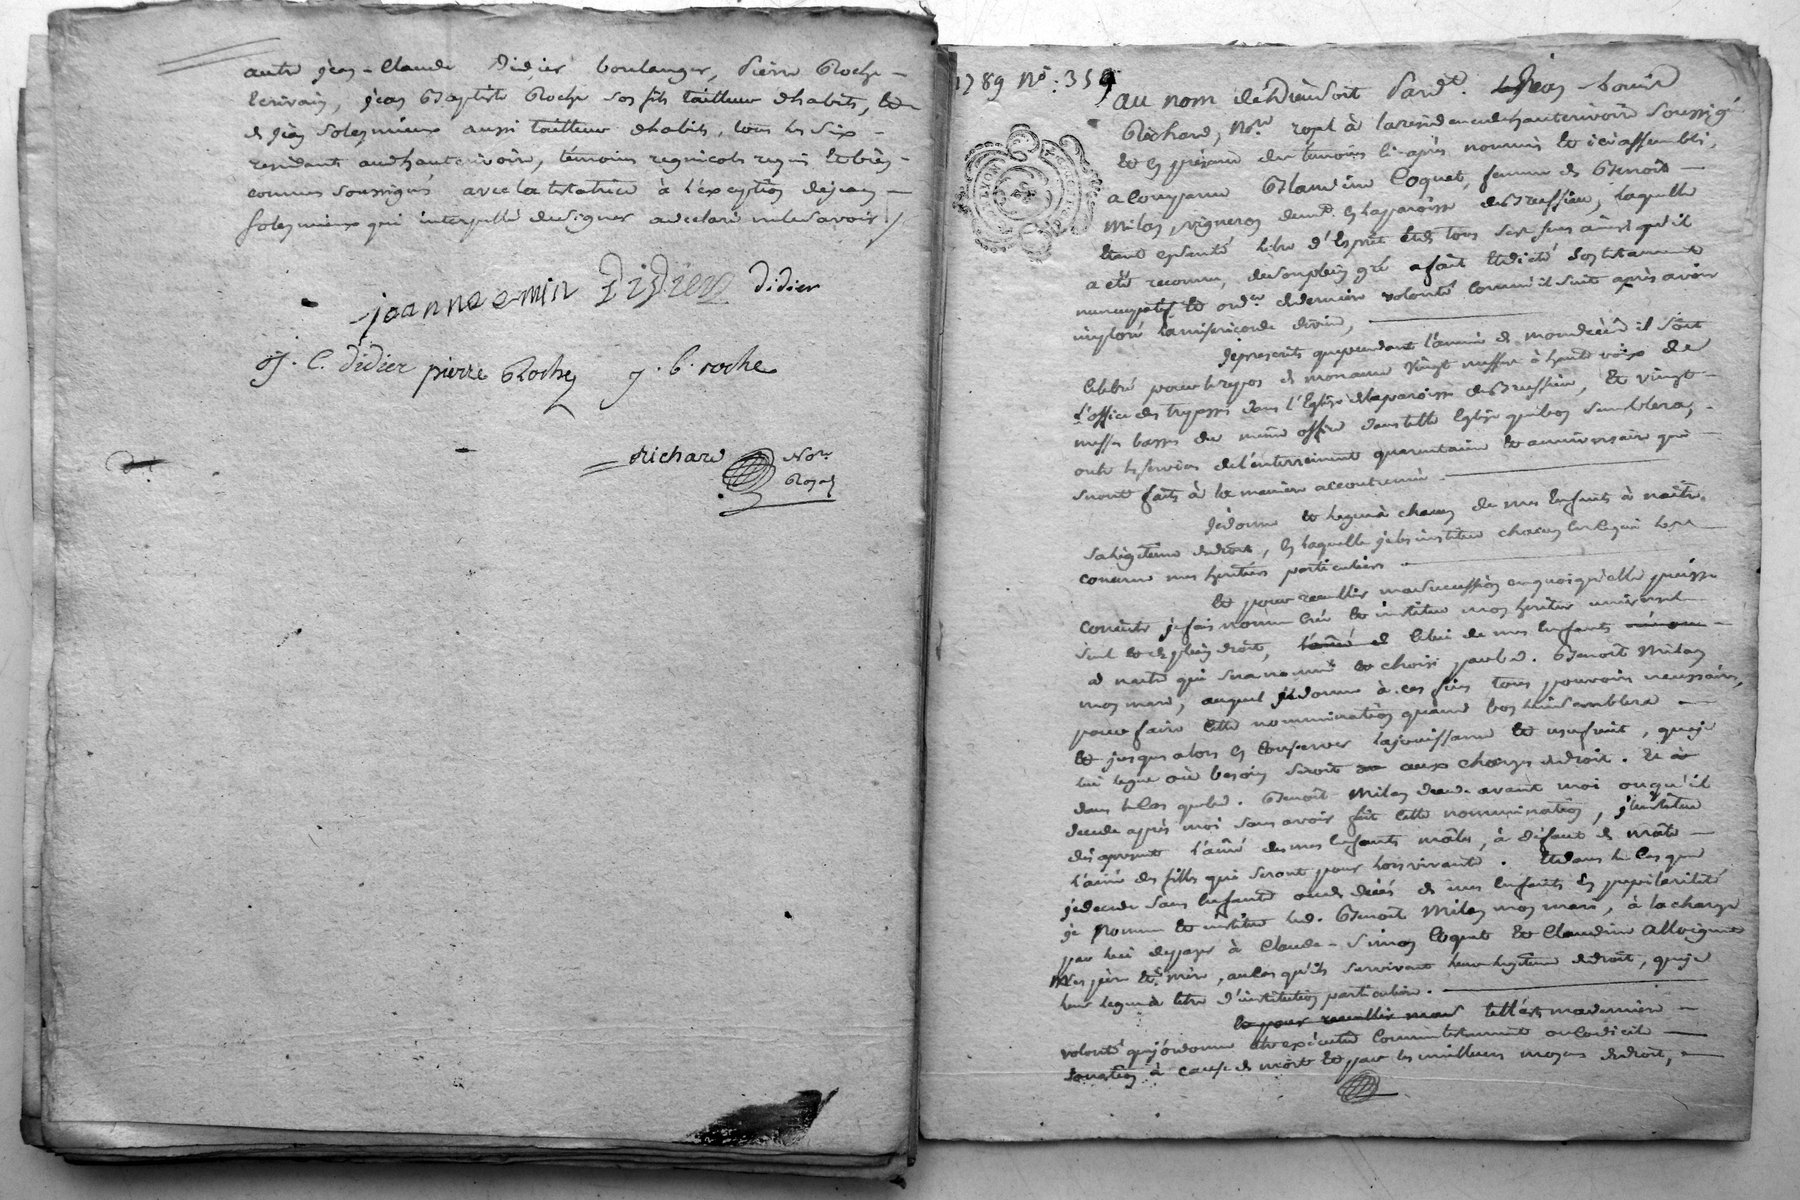 autre jean-Claude Didier boulanger, Pierre Roche
Ecrivain, jean Baptiste Roche son fils tailleur dhabits, et
de jean Solesmieux aussi tailleur dhabits, tous les six
residant audhauterivoire, témoins regnicols requis et bien
connus soussignés avec la testatrice à l'exception de jean
Solesmieux qui interpellé de signer a declaré ne le savoir
joannes emin Didier Didier
J. C. didier pierre Roche j. b. roche
Richard No.re
Royal
1789 No. 359
au nom de Dieu soit Pardt. jean Louis
Richard, No.re royal à la residence dehauterivoire soussigné
et en presence des temoins ci-après nommés et ici assemblés,
a comparu Blandine Coquet, femme de Benoit
Milan, vigneron demt. en la paroisse de Brussieu, laquelle
étant en santé libre d'Esprit et de tous ses sens ainsi qu'il
a été reconnu, de son plein gré a fait et dicté son testament
nuncupatif et ord.re de derniere volonté comme il suit après avoir
imploré la misericorde divine,
Je prescrits que pendant l'année de mon décès il soit
celebré pour le repos de mon ame vingt messes à haute voix de
l'office des trepassés dans l'Eglise de la paroisse de Brussieu, et vingt
messes basses du même office dans telle Eglise que bon semblera,
outre les services de l'enterrement quarantaine et anniversaire qui
seront faits à la maniere accoutumée
Je donne et legue à chacun de mes Enfants à naitre,
sa legitime de droit, en laquelle je les institue chacun en
comme mes heritiers particuliers
et pour recueillir ma succession en quoi qu'elle puisse
consister je fais nomme crée et institue mon heritier universel
seul et de plein droit, l'ainé de celui de mes Enfants
à naitre qui sera nommé et choisi par led. Benoit Milan
mon mari, auquel je donne à ces fins tous pouvoirs necessaires,
pour faire cette nommination quand bon lui semblera
et jusques alors en conserver la jouissance et usufruit, que je
lui legue où besoin seroit aux charges de droit. Et
dans le cas que led. Benoit Milan decede avant moi ou qu'il
decede après moi sans avoir fait cette nommination, j'institue
dès apresent l'ainé des mes Enfants mâles, à défaut de mâle
l'ainé des filles qui seront pour lors vivants. Et dans le cas que
je decede sans Enfants ou de décès de mes Enfants en pupilarité
je nomme et institue led. Benoit Milan mon mari, à la charge
par lui de payer à Claude-Simon Coquet et Claudine Alloignet
Mes père et mère, au cas qu'ils survivent leur legitime de droit, que je
leur legue à titre d'institution particuliere.
et pour recueillir mad telle est ma derniere
volonté que j'ordonne etre exécutée comme testament ou codicile
donation à cause de mort et par les meilleurs moyens de droit,